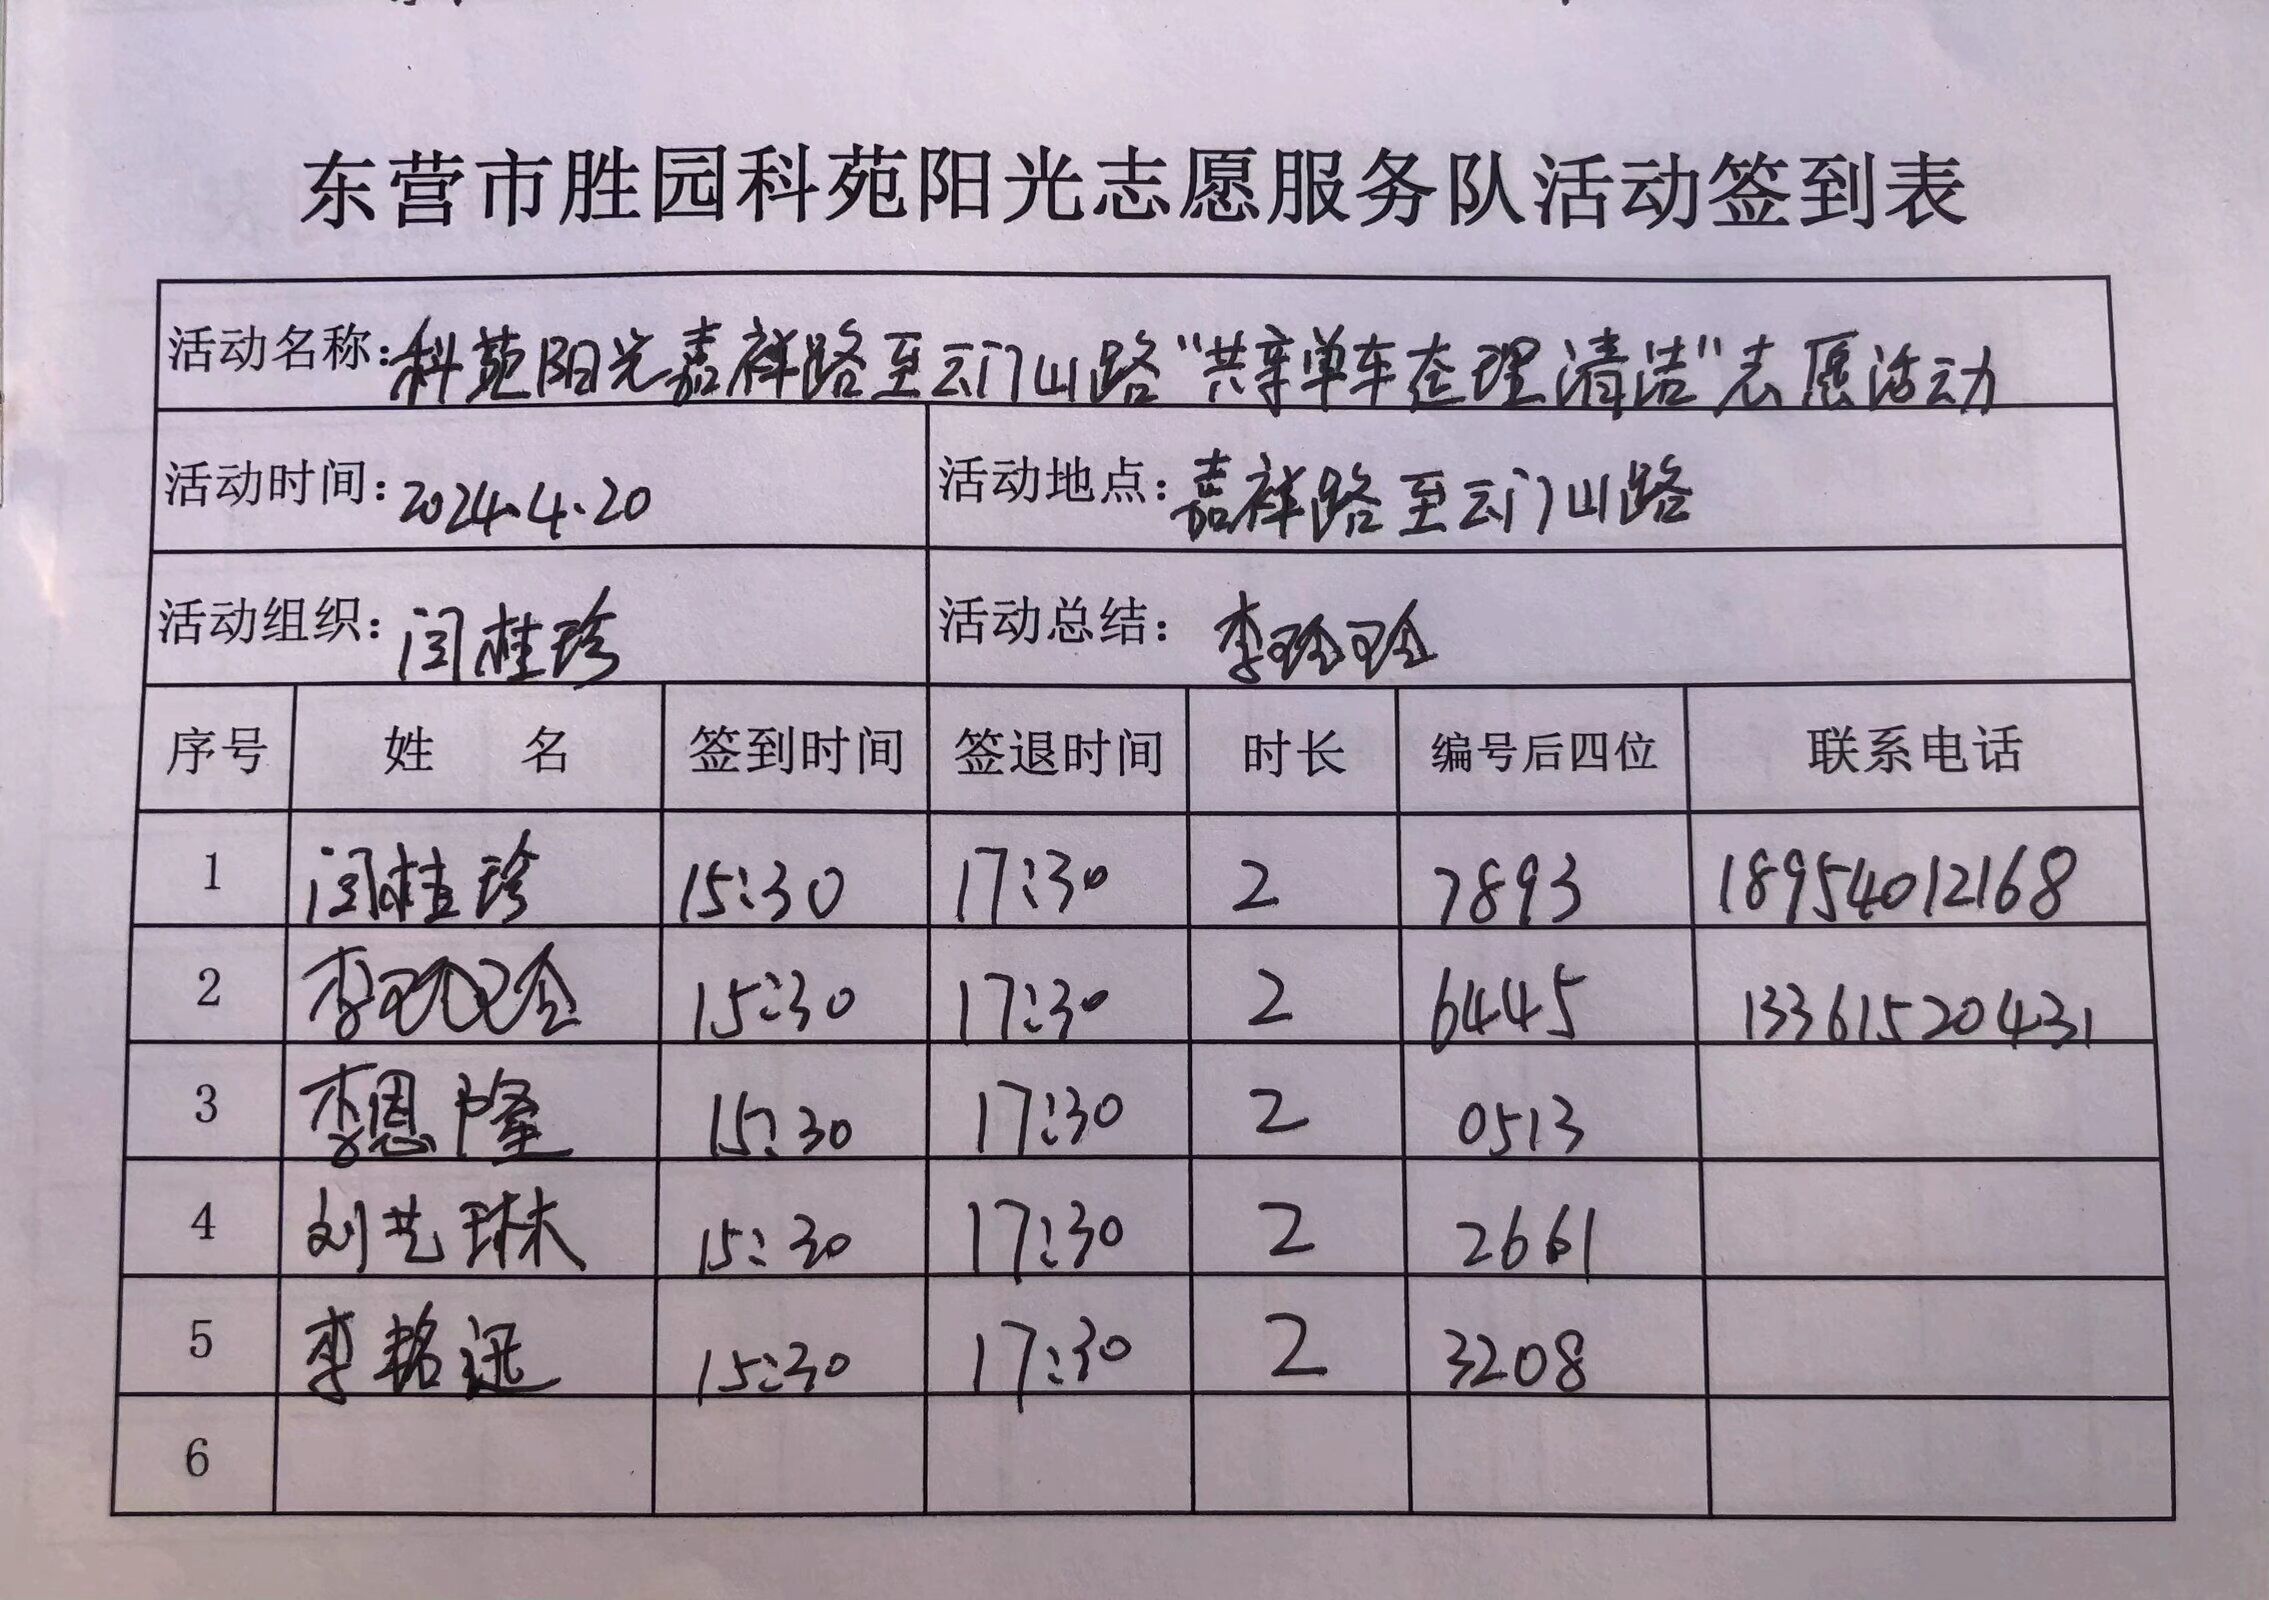 东营市胜园科苑阳光志愿服务队活动签到表
活动名称:科苑阳光嘉祥路至云门山路“共享单车整理清洁”志愿活动
活动时间:2024.4.20 活动地点:嘉祥路至云门山路
活动组织:闫桂珍 活动总结:李玲玲
序号 姓 名 签到时间 签退时间 时长 编号后四位 联系电话
1 闫桂珍 15:30 17:30 2 7893 18954012168
2 李玲玲 15:30 17:30 2 6445 13361520431
3 李恩隆 15:30 17:30 2 0513
4 刘艺琳 15:30 17:30 2 2661
5 李铭迅 15:30 17:30 2 3208
6